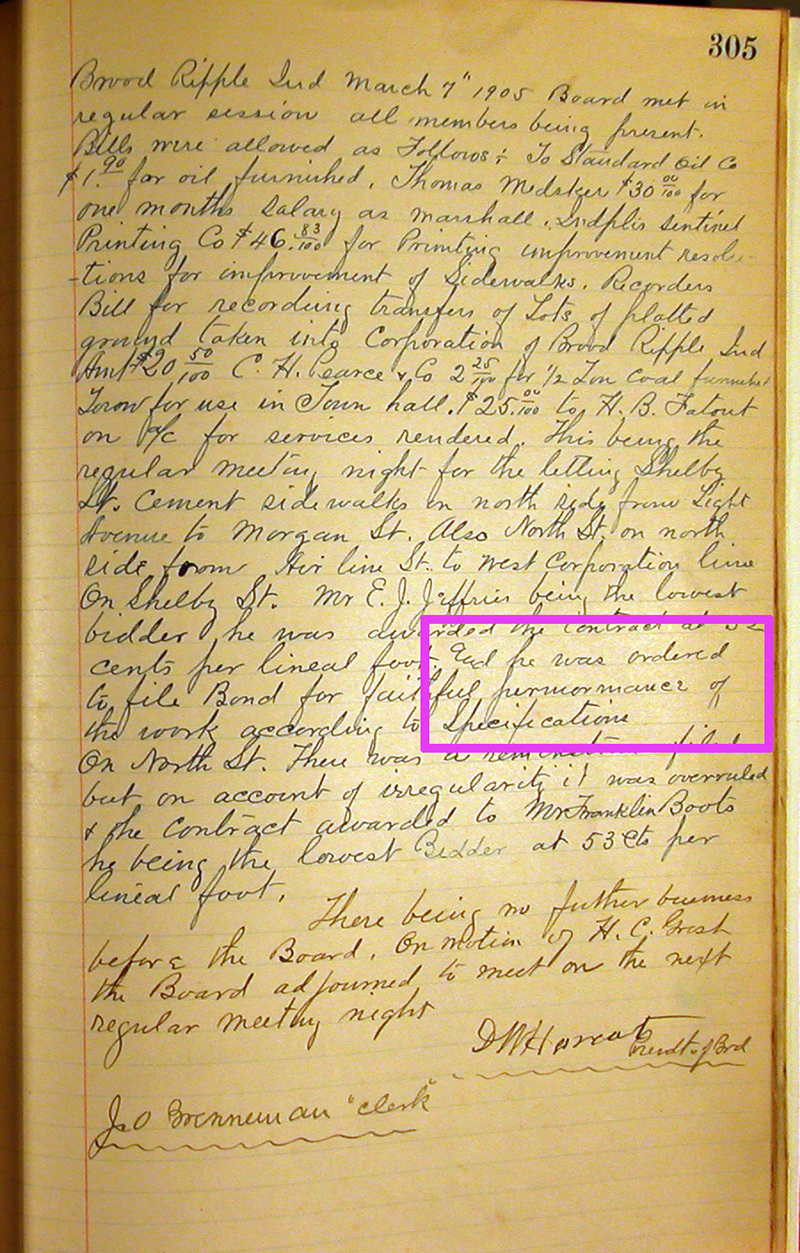 305
Brood Ripple Ind March 7" 1905 Board met in
regular session all members being present.
Bills were allowed as Follows: To Standard Oil Co
$1.90 for oil furnished. Thomas Medsker $30 00/100 for
one months salary as marshall. Indplis Sentinel
Printing Co $46.83/100 for Printing improvement resolu-
-tions for improvement of Sidewalks. Recorders
Bill for recording transfers of Lots of platted
ground taken into Corporation of Brood Ripple Ind
Amt $20 50/100 C. H. Pearce & Co 2 25/100 for 1/2 Ton Coal furnished
Town for use in Town hall. $25.00/100 to H. B. Fatout
on a/c for services rendered. This being the
regular meeting night for the letting Shelby
St. Cement sidewalks on north side from Light
Avenue to Morgan St. Also North St. on north
side from Air line St. to West Corporation line
On Shelby St. Mr E. J. Jeffries being the lowest
bidder he was awarded the Contract at 52
cents per lineal foot. And he was ordered
to file Bond for faithful permormance of
the work according to Specifications
On North St. There was a filed
but on account of irregularity it was overruled
& the Contract awarded to Mr Franklin Boots
he being the lowest Bidder at 53 cts per
lineal foot.
There being no futher business
before the Board. On motion of H. C. Grosh
the Board adjourned to meet on the next
regular meeting night
Presdt of Brd
Jno Brenneman "Clerk"